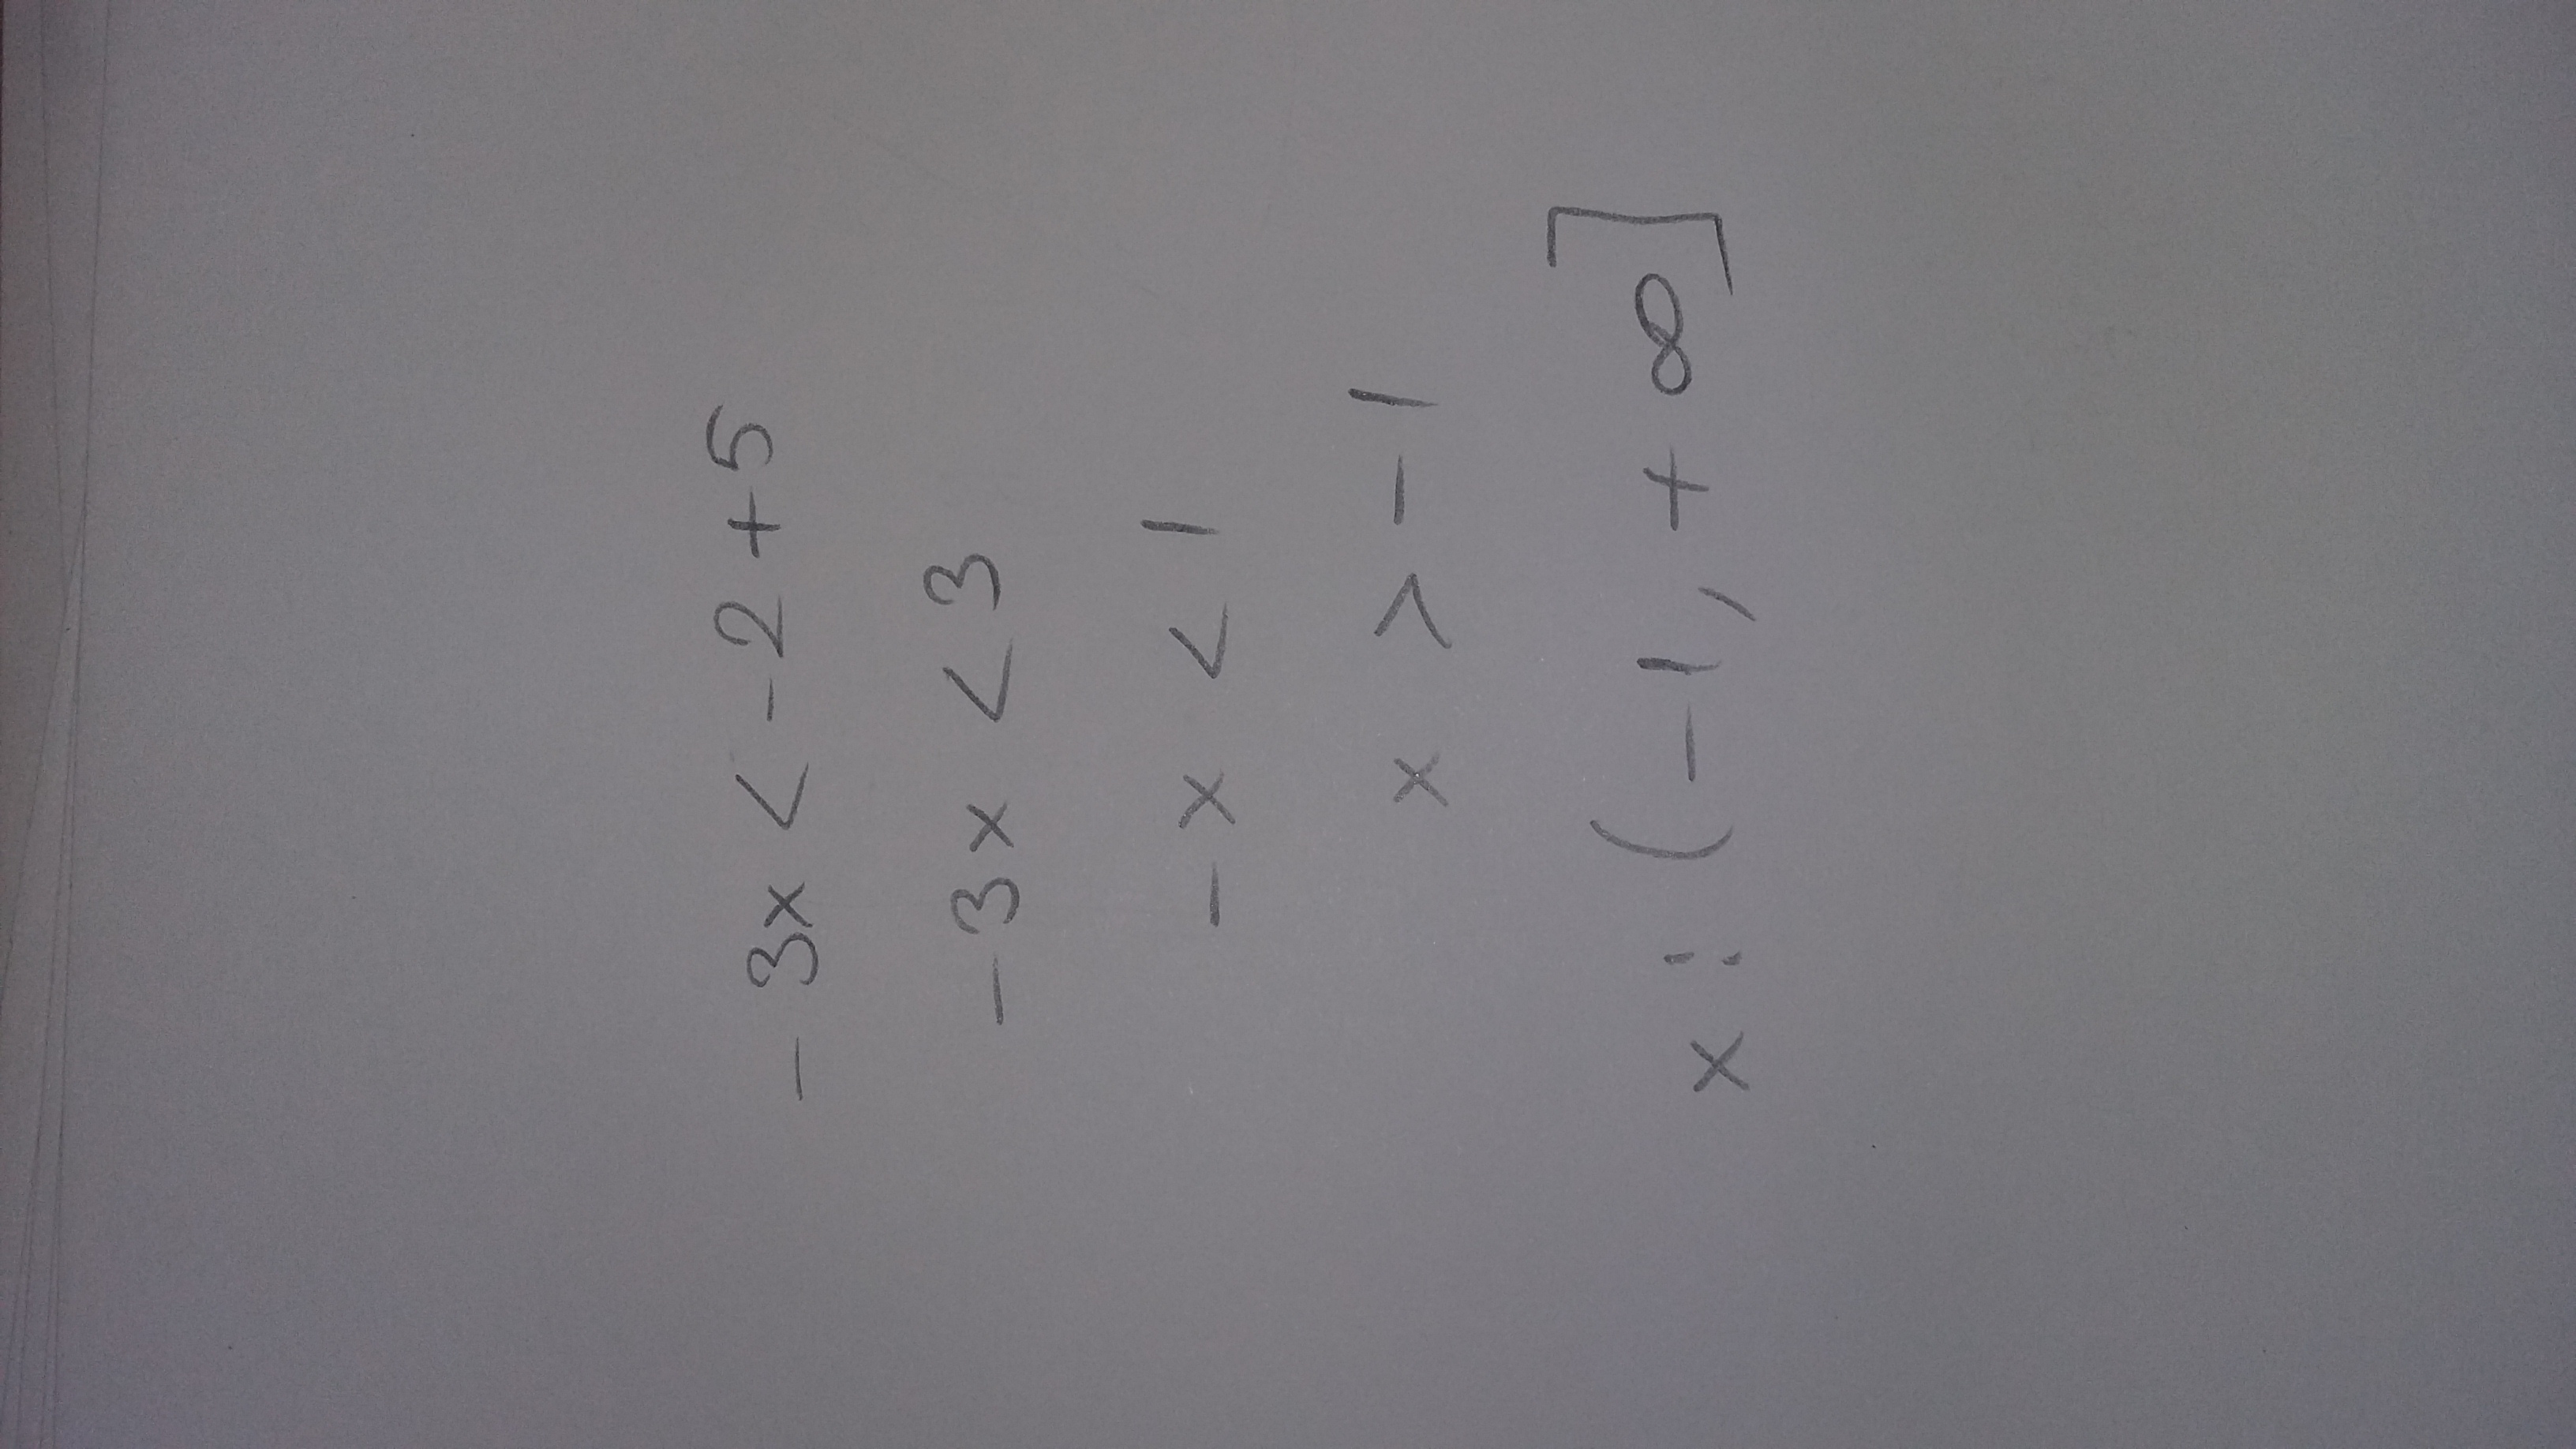 - 3x < - 2 + 5
- 3x < 3
- x < 1
x > - 1
x : ( - 1, + ∞ ]